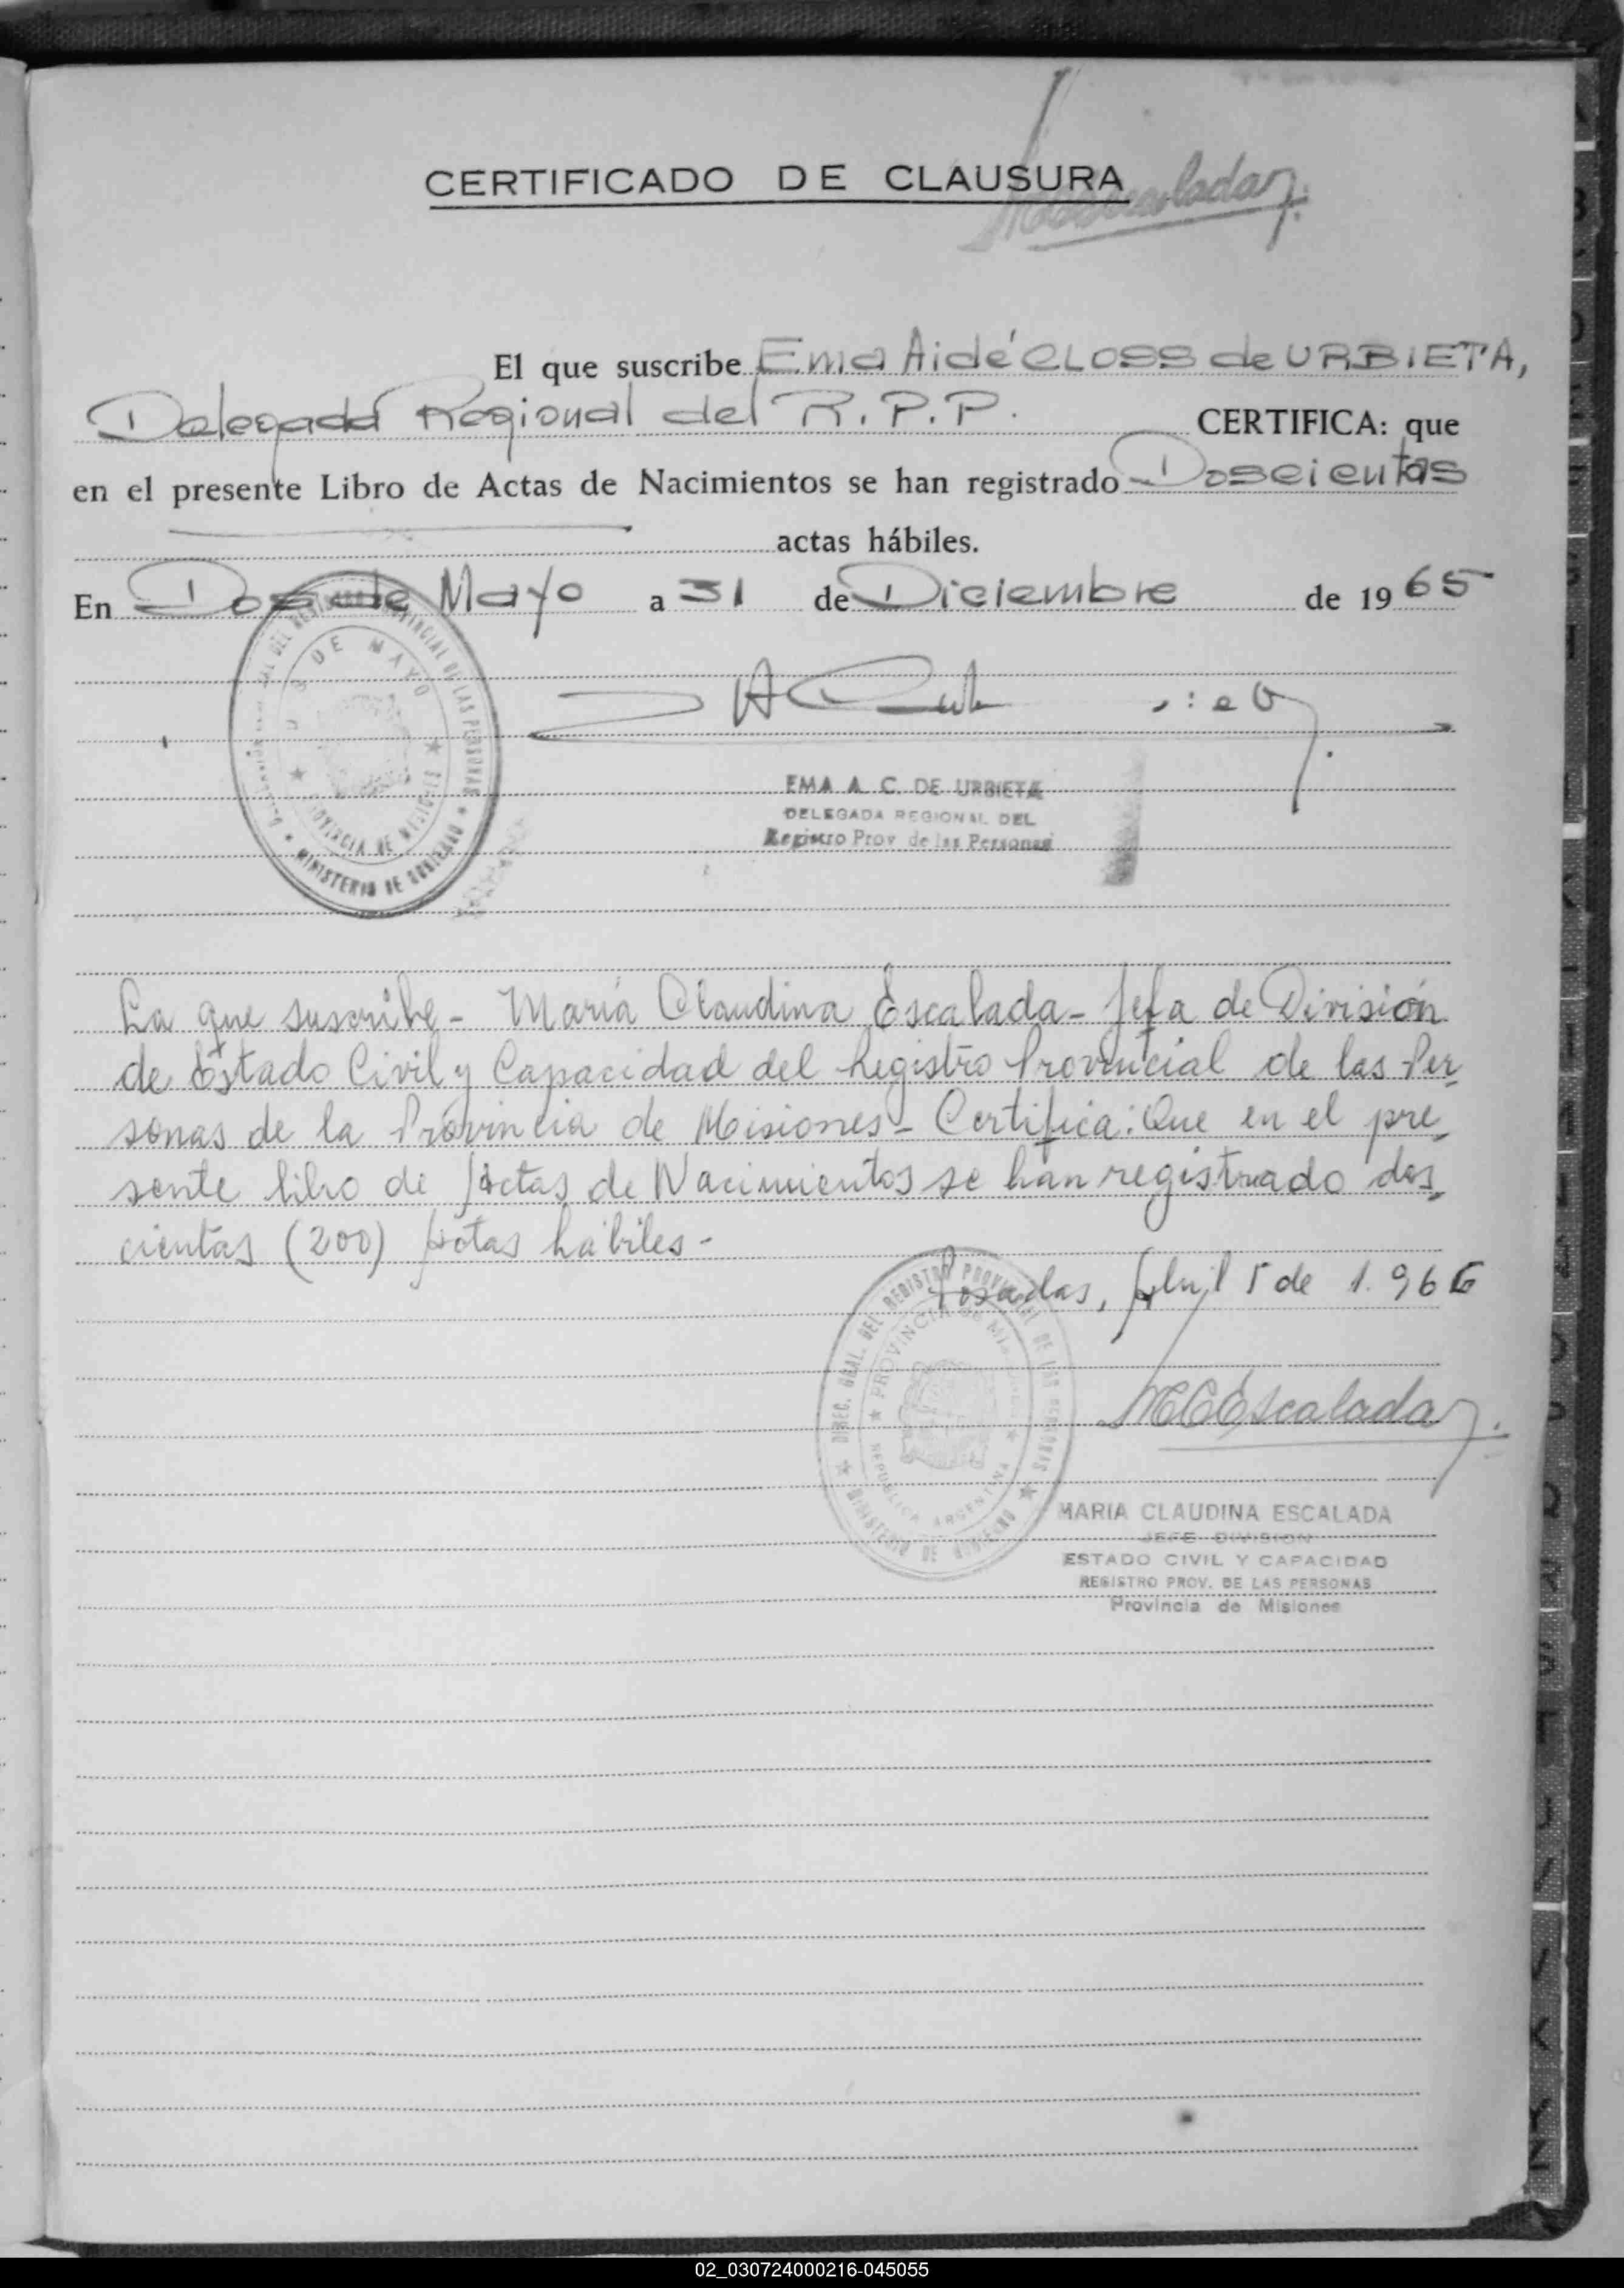 CERTIFICADO DE CLAUSURA
MCEscalada
El que suscribe Ema Aidé CLOSS de URBIETA,
Delegada Regional del R.P.P. CERTIFICA: que
en el presente Libro de Actas de Nacimientos se han registrado Doscientas
actas hábiles.
En Dos de Mayo a 31 de Diciembre de 1965
DOS DE MAYO
PROVINCIA DE MISIONES
MINISTERIO DE GOBIERNO
EMA A. C. DE URBIETA
DELEGADA REGIONAL DEL
Registro Prov de las Personas
La que suscribe - María Claudina Escalada - Jefa de División
de Estado Civil y Capacidad del Registro Provincial de las Per
sonas de la Provincia de Misiones - Certifica: Que en el pre
sente libro de Actas de Nacimientos se han registrado dos
cientas (200) Actas hábiles -
Posadas, Abril 5 de 1.966
DIREC. GRAL. DEL REGISTRO PROVINCIAL DE LAS PERSONAS
MINISTERIO DE GOBIERNO
PROVINCIA de Misiones
REPUBLICA ARGENTINA
MCEscalada
MARIA CLAUDINA ESCALADA
JEFE DIVISION
ESTADO CIVIL Y CAPACIDAD
REGISTRO PROV. DE LAS PERSONAS
Provincia de Misiones
02_030724000216-045055